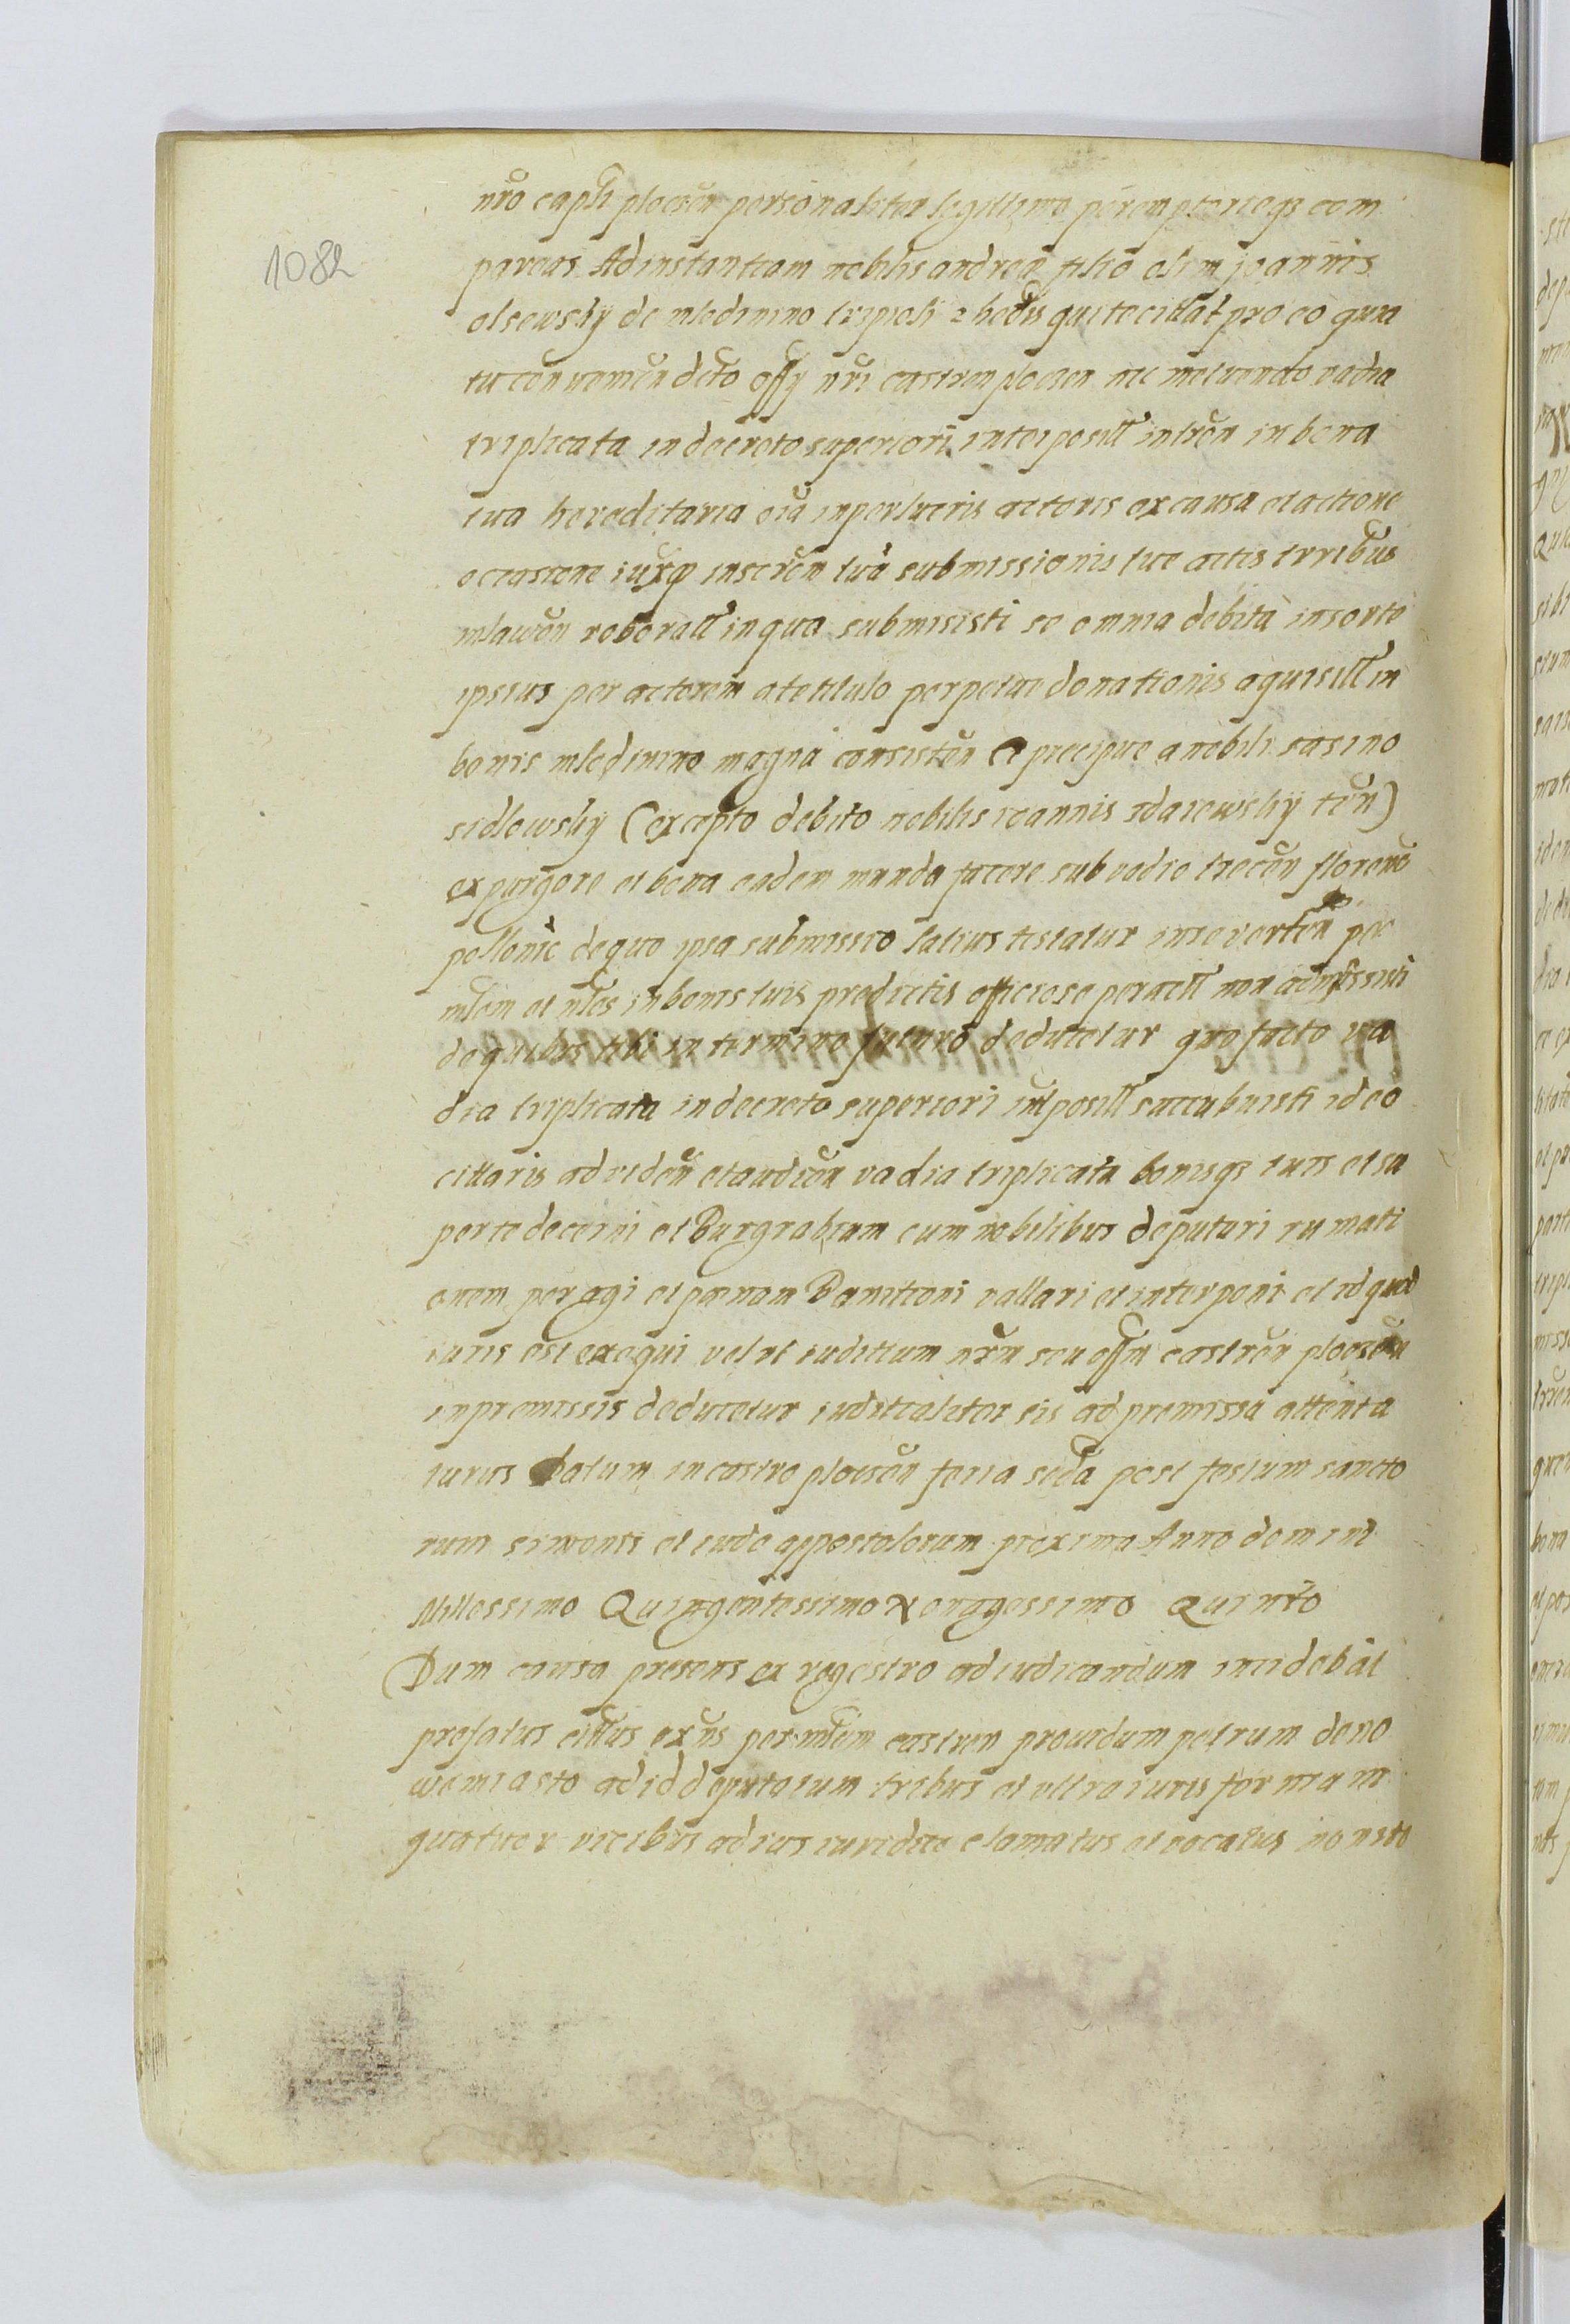 1082
nr̃o capłi plocen̄ personaliter legittime peremptorieqȝ com
pareas Ad instantiam nobilis andreæ filio olim joannis
olsewsky de mledinino tripoli hedis qui te cittat pro eo quia
tu conuemen dicto offy nr̃i castren plocen nec metuendo vadia
triplicata in decreto superiori interposill intrōn in bona
tua hereditaria oia in perlucris actoris ex causa et actione
occasione iuxq inscrēn tuā submissionis tue actis trribus
mlawēn roborall in qua submisisti se omnia debita in sorte
ipsius per actorem a te titulo perpetue donationis aquisill in
bonis mledinino magna consisten̄ et precipue a nobili sasino
sidlowsky (excepto debito nobilis ioannis zdarowsky tēn)
expurgare et bona eadem munda facere sub vadio trecēn floreno
pollonic de quo ipsa submissio latius testatur inte reverten per
mlem et nles in bonis tuis predictis officiose perall non admisisti
de quibus tibi in termino futuro deducetur quo facto va
dia triplicata in decreto superiori intposill succubuisti ideo
cittaris ad viden̄ et audien̄ vadia triplicata bonisqȝ tuis et sa
perte decerni et Burgrabium cum nobilibus deputari rumati
onem peragi et pœnam Bamitioni vallari et interponi et id quod
iuris est exequi vel ut iuditium nrm seu offm castrēn plocēn
in premissis deducetur iuditialiter sis ad premissa attenta
turus Datum in castro plocēn feria secda post festum sancto
rum simonis et iude appostolorum proxima Anno domini
Millessimo Quingentessimo Nonagessimo Quinto
Dum causa presens ex regestro ad iudicandum incidebat
prefatus cittus exn̄s per mlem castren prouidum petrum de no
womiasto ad id deputatum tribus et ultra iuris formam
quatuor vicibus ad ius iuridice clamatus et vocatus non ite